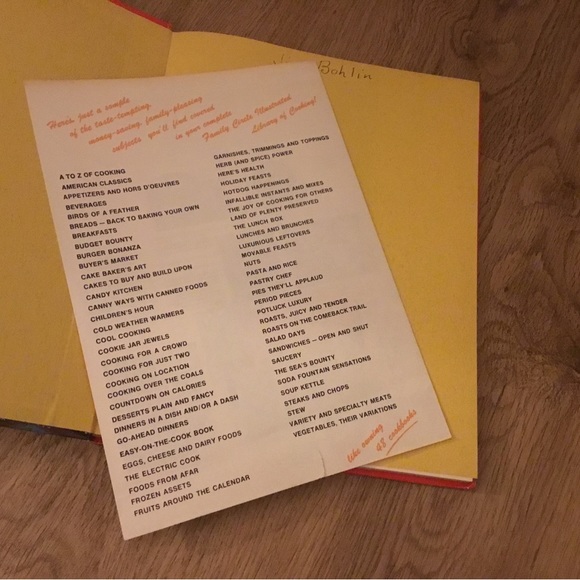 Bohlin
Here's just a sample
of the taste-tempting,
money-saving, family-pleasing
subjects you'll find covered
in your complete
Family Circle Illustrated
Library of Cooking!
A TO Z OF COOKING
AMERICAN CLASSICS
APPETIZERS AND HORS D'OEUVRES
BEVERAGES
BIRDS OF A FEATHER
BREADS — BACK TO BAKING YOUR OWN
BREAKFASTS
BUDGET BOUNTY
BURGER BONANZA
BUYER'S MARKET
CAKE BAKER'S ART
CAKES TO BUY AND BUILD UPON
CANDY KITCHEN
CANNY WAYS WITH CANNED FOODS
CHILDREN'S HOUR
COLD WEATHER WARMERS
COOL COOKING
COOKIE JAR JEWELS
COOKING FOR A CROWD
COOKING FOR JUST TWO
COOKING ON LOCATION
COOKING OVER THE COALS
COUNTDOWN ON CALORIES
DESSERTS PLAIN AND FANCY
DINNERS IN A DISH AND/OR A DASH
GO-AHEAD DINNERS
EASY-ON-THE-COOK BOOK
EGGS, CHEESE AND DAIRY FOODS
THE ELECTRIC COOK
FOODS FROM AFAR
FROZEN ASSETS
FRUITS AROUND THE CALENDAR
GARNISHES, TRIMMINGS AND TOPPINGS
HERB (AND SPICE) POWER
HERE'S HEALTH
HOLIDAY FEASTS
HOTDOG HAPPENINGS
INFALLIBLE INSTANTS AND MIXES
THE JOY OF COOKING FOR OTHERS
LAND OF PLENTY PRESERVED
THE LUNCH BOX
LUNCHES AND BRUNCHES
LUXURIOUS LEFTOVERS
MOVABLE FEASTS
NUTS
PASTA AND RICE
PASTRY CHEF
PIES THEY'LL APPLAUD
PERIOD PIECES
POTLUCK LUXURY
ROASTS, JUICY AND TENDER
ROASTS ON THE COMEBACK TRAIL
SALAD DAYS
SANDWICHES — OPEN AND SHUT
SAUCERY
THE SEA'S BOUNTY
SODA FOUNTAIN SENSATIONS
SOUP KETTLE
STEAKS AND CHOPS
STEW
VARIETY AND SPECIALTY MEATS
VEGETABLES, THEIR VARIATIONS
like owning
48 cookbooks